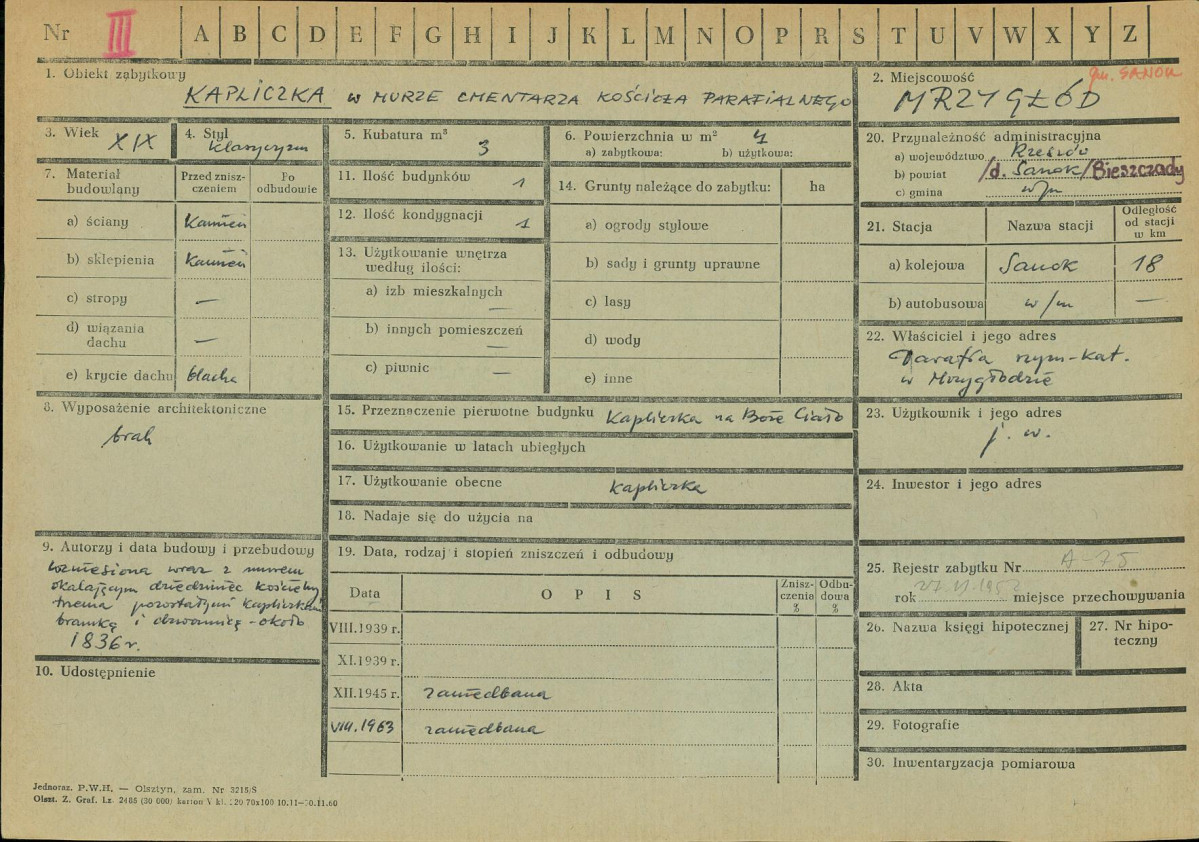 Nr III A B C D E F G H I J K L M N O P R S T U V W X Y Z
1. Obiekt zabytkowy
KAPLICZKA W MURZE CMENTARZA KOŚCIOŁA PARAFIALNEGO
2. Miejscowość
gm. SANOK
MRZYGŁÓD
3. Wiek XIX
4. Styl
klasycyzm
5. Kubatura m³
3
6. Powierzchnia w m²
a) zabytkowa: b) użytkowa:
20. Przynależność administracyjna
a) województwo Rzeszów
b) powiat /d. Sanok/Bieszczady
c) gmina w/m
7. Materiał budowlany
Przed zniszczeniem
Po odbudowie
a) ściany Kamień
b) sklepienia Kamień
c) stropy —
d) wiązania dachu —
e) krycie dachu blacha
11. Ilość budynków 1
12. Ilość kondygnacji 1
13. Użytkowanie wnętrza
według ilości:
a) izb mieszkalnych —
b) innych pomieszczeń —
c) piwnic —
14. Grunty należące do zabytku: ha
a) ogrody stylowe
b) sady i grunty uprawne
c) lasy
d) wody
e) inne
21. Stacja
Nazwa stacji
Odległość
od stacji
w km
a) kolejowa Sanok 18
b) autobusowa w/m —
22. Właściciel i jego adres
Parafia rzym-kat.
w Mrzygłodzie
8. Wyposażenie architektoniczne
brak
15. Przeznaczenie pierwotne budynku Kapliczka na Boże Ciało
16. Użytkowanie w latach ubiegłych
17. Użytkowanie obecne kapliczka
18. Nadaje się do użycia na
23. Użytkownik i jego adres
j. w.
24. Inwestor i jego adres
9. Autorzy i data budowy i przebudowy
wzniesiona wraz z murem
okalającym dziedziniec kościelny
trzema pozostałymi kapliczkami
bramką i dzwonnicą - około
1836 r.
10. Udostępnienie
19. Data, rodzaj i stopień zniszczeń i odbudowy
Data
O P I S
Zniszczenia %
Odbudowa %
VIII.1939 r.
XI.1939 r.
XII.1945 r. zaniedbana
VIII.1963 zaniedbana
25. Rejestr zabytku Nr A-75
rok miejsce przechowywania
26. Nazwa księgi hipotecznej
27. Nr hipoteczny
28. Akta
29. Fotografie
30. Inwentaryzacja pomiarowa
Jednoraz. P.W.H. — Olsztyn, zam. Nr 3215/S
Olszt. Z. Graf. Lz. 2486 (30 000) karton V kl. 220 70x100 10.11—30.11.60